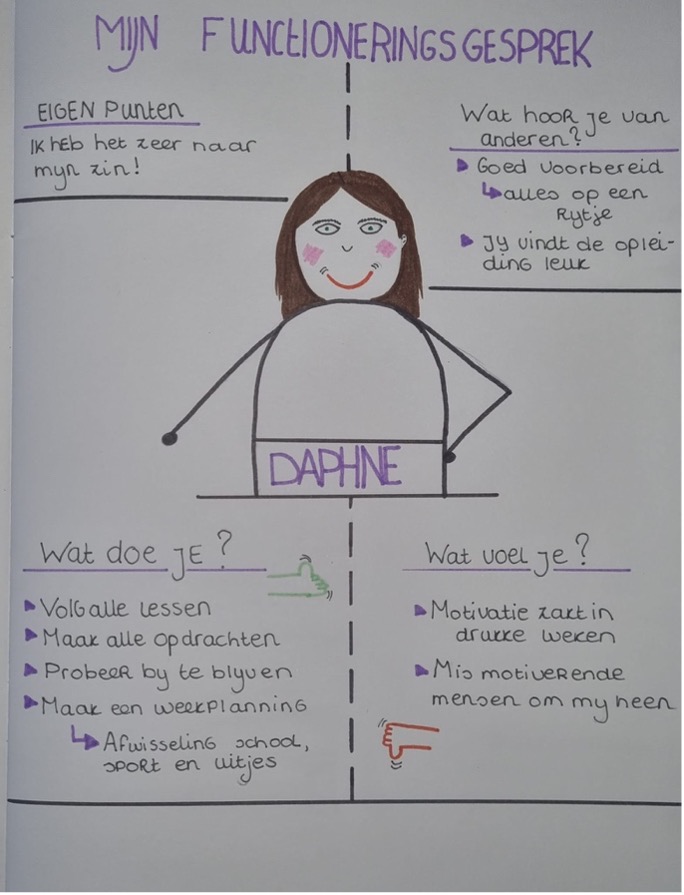 MIJN FUNCTIONERINGSGESPREK
EIGEN Punten
IK HEB het zeer naar
mijn zin!
Wat hoor je van
anderen?
Goed voorbereid
alles op een
Rijtje
Jij vindt de oplei-
ding leuk
DAPHNE
Wat doe je?
Volg alle lessen
Maak alle opdrachten
Probeer bij te blijven
Maak een weekplanning
Afwisseling school,
sport en uitjes
Wat voel je?
Motivatie zakt in
drukke weken
Mis motiverende
mensen om mij heen